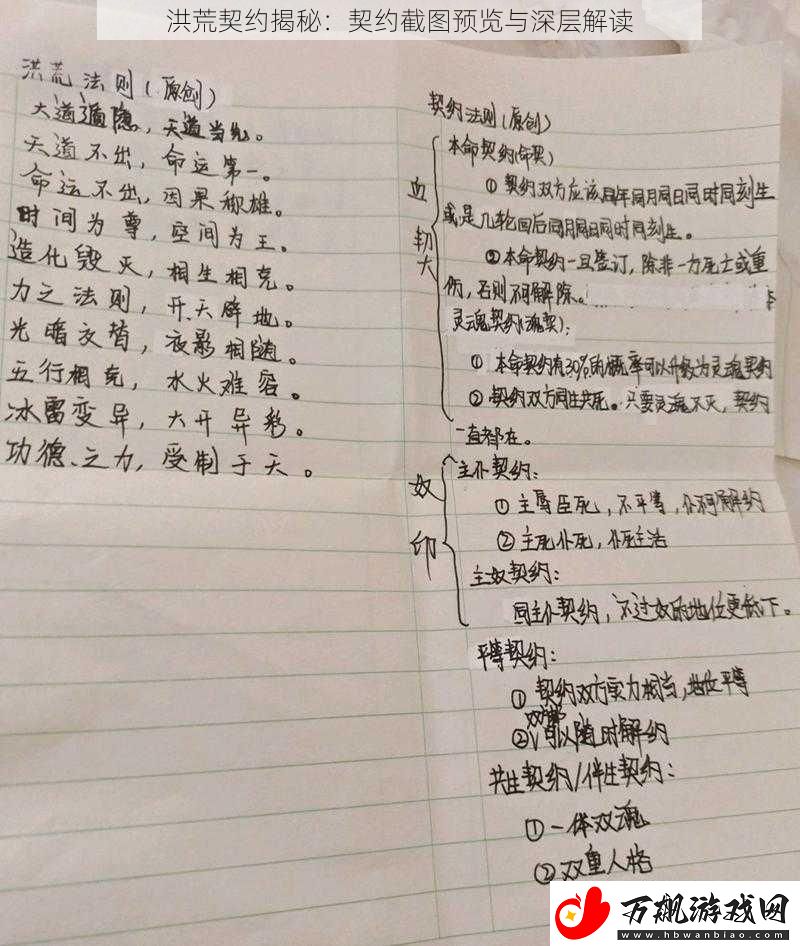 洪荒契约揭秘：契约截图预览与深层解读
洪荒法则(原创)
大道遁隐，天道当先。
天道不出，命运第一。
命运不出，因果称雄。
时间为尊，空间为王。
造化毁灭，相生相克。
力之法则，开天辟地。
光暗交替，夜影相随。
五行相克，水火难容。
冰雷变异，大开异彩。
功德之力，受制于天。
契约法则(原创)
血
契
本命契约(命契)
①契约双方应该同年同月同日同时同刻生
或是几轮回后同月同日同时同刻生。
②本命契约一旦签订，除非一方死亡或重
伤，否则不可解除。
灵魂契约(魂契)：
①本命契约有30%的概率可以升级为灵魂契约
②契约双方同生共死。只要灵魂不灭，契约
一直都在。
奴
印
主仆契约：
①主辱臣死，不平等，仆不可解约
②主死仆死，仆死主活
主奴契约：
同主仆契约，不过奴的地位更低下。
平等契约：
①契约双方实力相当，地位平等
②双方都可以随时解约
共生契约/伴生契约：
①一体双魂
②双重人格
万飙游戏网
www.hbwanbiao.com